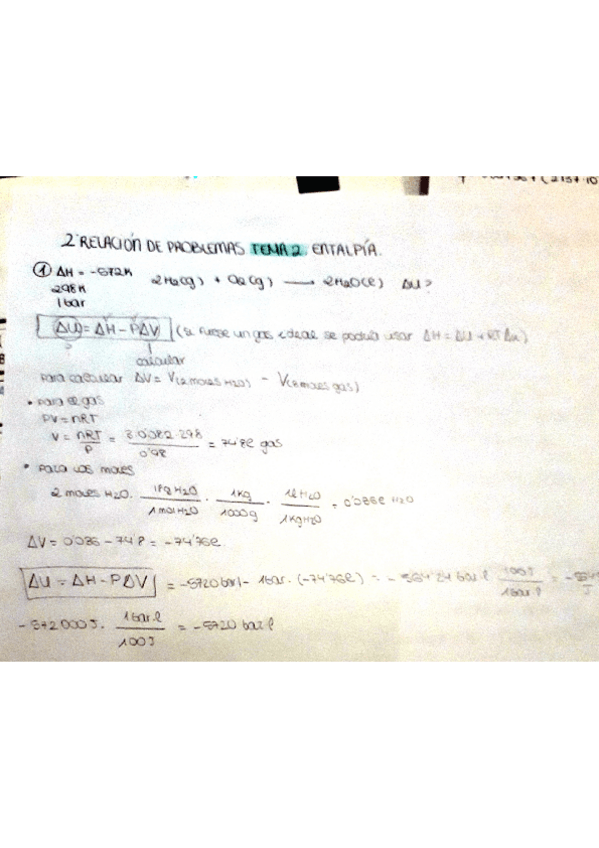 2ª RELACIÓN DE PROBLEMAS TEMA 2. ENTALPÍA.
① ΔH = -572K 2H₂(g) + O₂(g) → 2H₂O(l) ΔU?
298K
1bar
ΔU = ΔH - PΔV (si fuese un gas ideal se podría usar ΔH = ΔU + RTΔn)
calcular
para calcular ΔV = V(2 moles H₂O) - V(3 moles gas)
• para el gas
PV = nRT
V = nRT/P = 3·0'082·298/0'98 = 74'8l gas
• para los moles
2 moles H₂O · 18g H₂O/1mol H₂O · 1Kg/1000g · 1l H₂O/1Kg H₂O = 0'036l H₂O
ΔV = 0'036 - 74'8 = -74'76l
ΔU = ΔH - PΔV = -5720 barl - 1bar · (-74'76l) = - bar·l 100J/1bar·l =
J
-572000J · 1bar·l/100J = -5720 bar·l